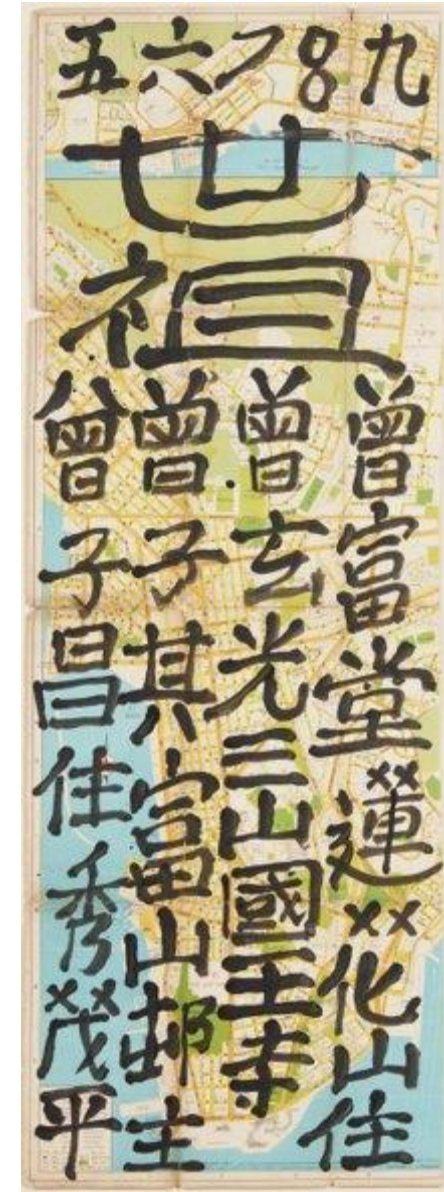 九87六五
世
祖
曾富堂蓮花山住
曾玄光三山國王寺
曾子其富山邨主
曾子昌住秀茂平